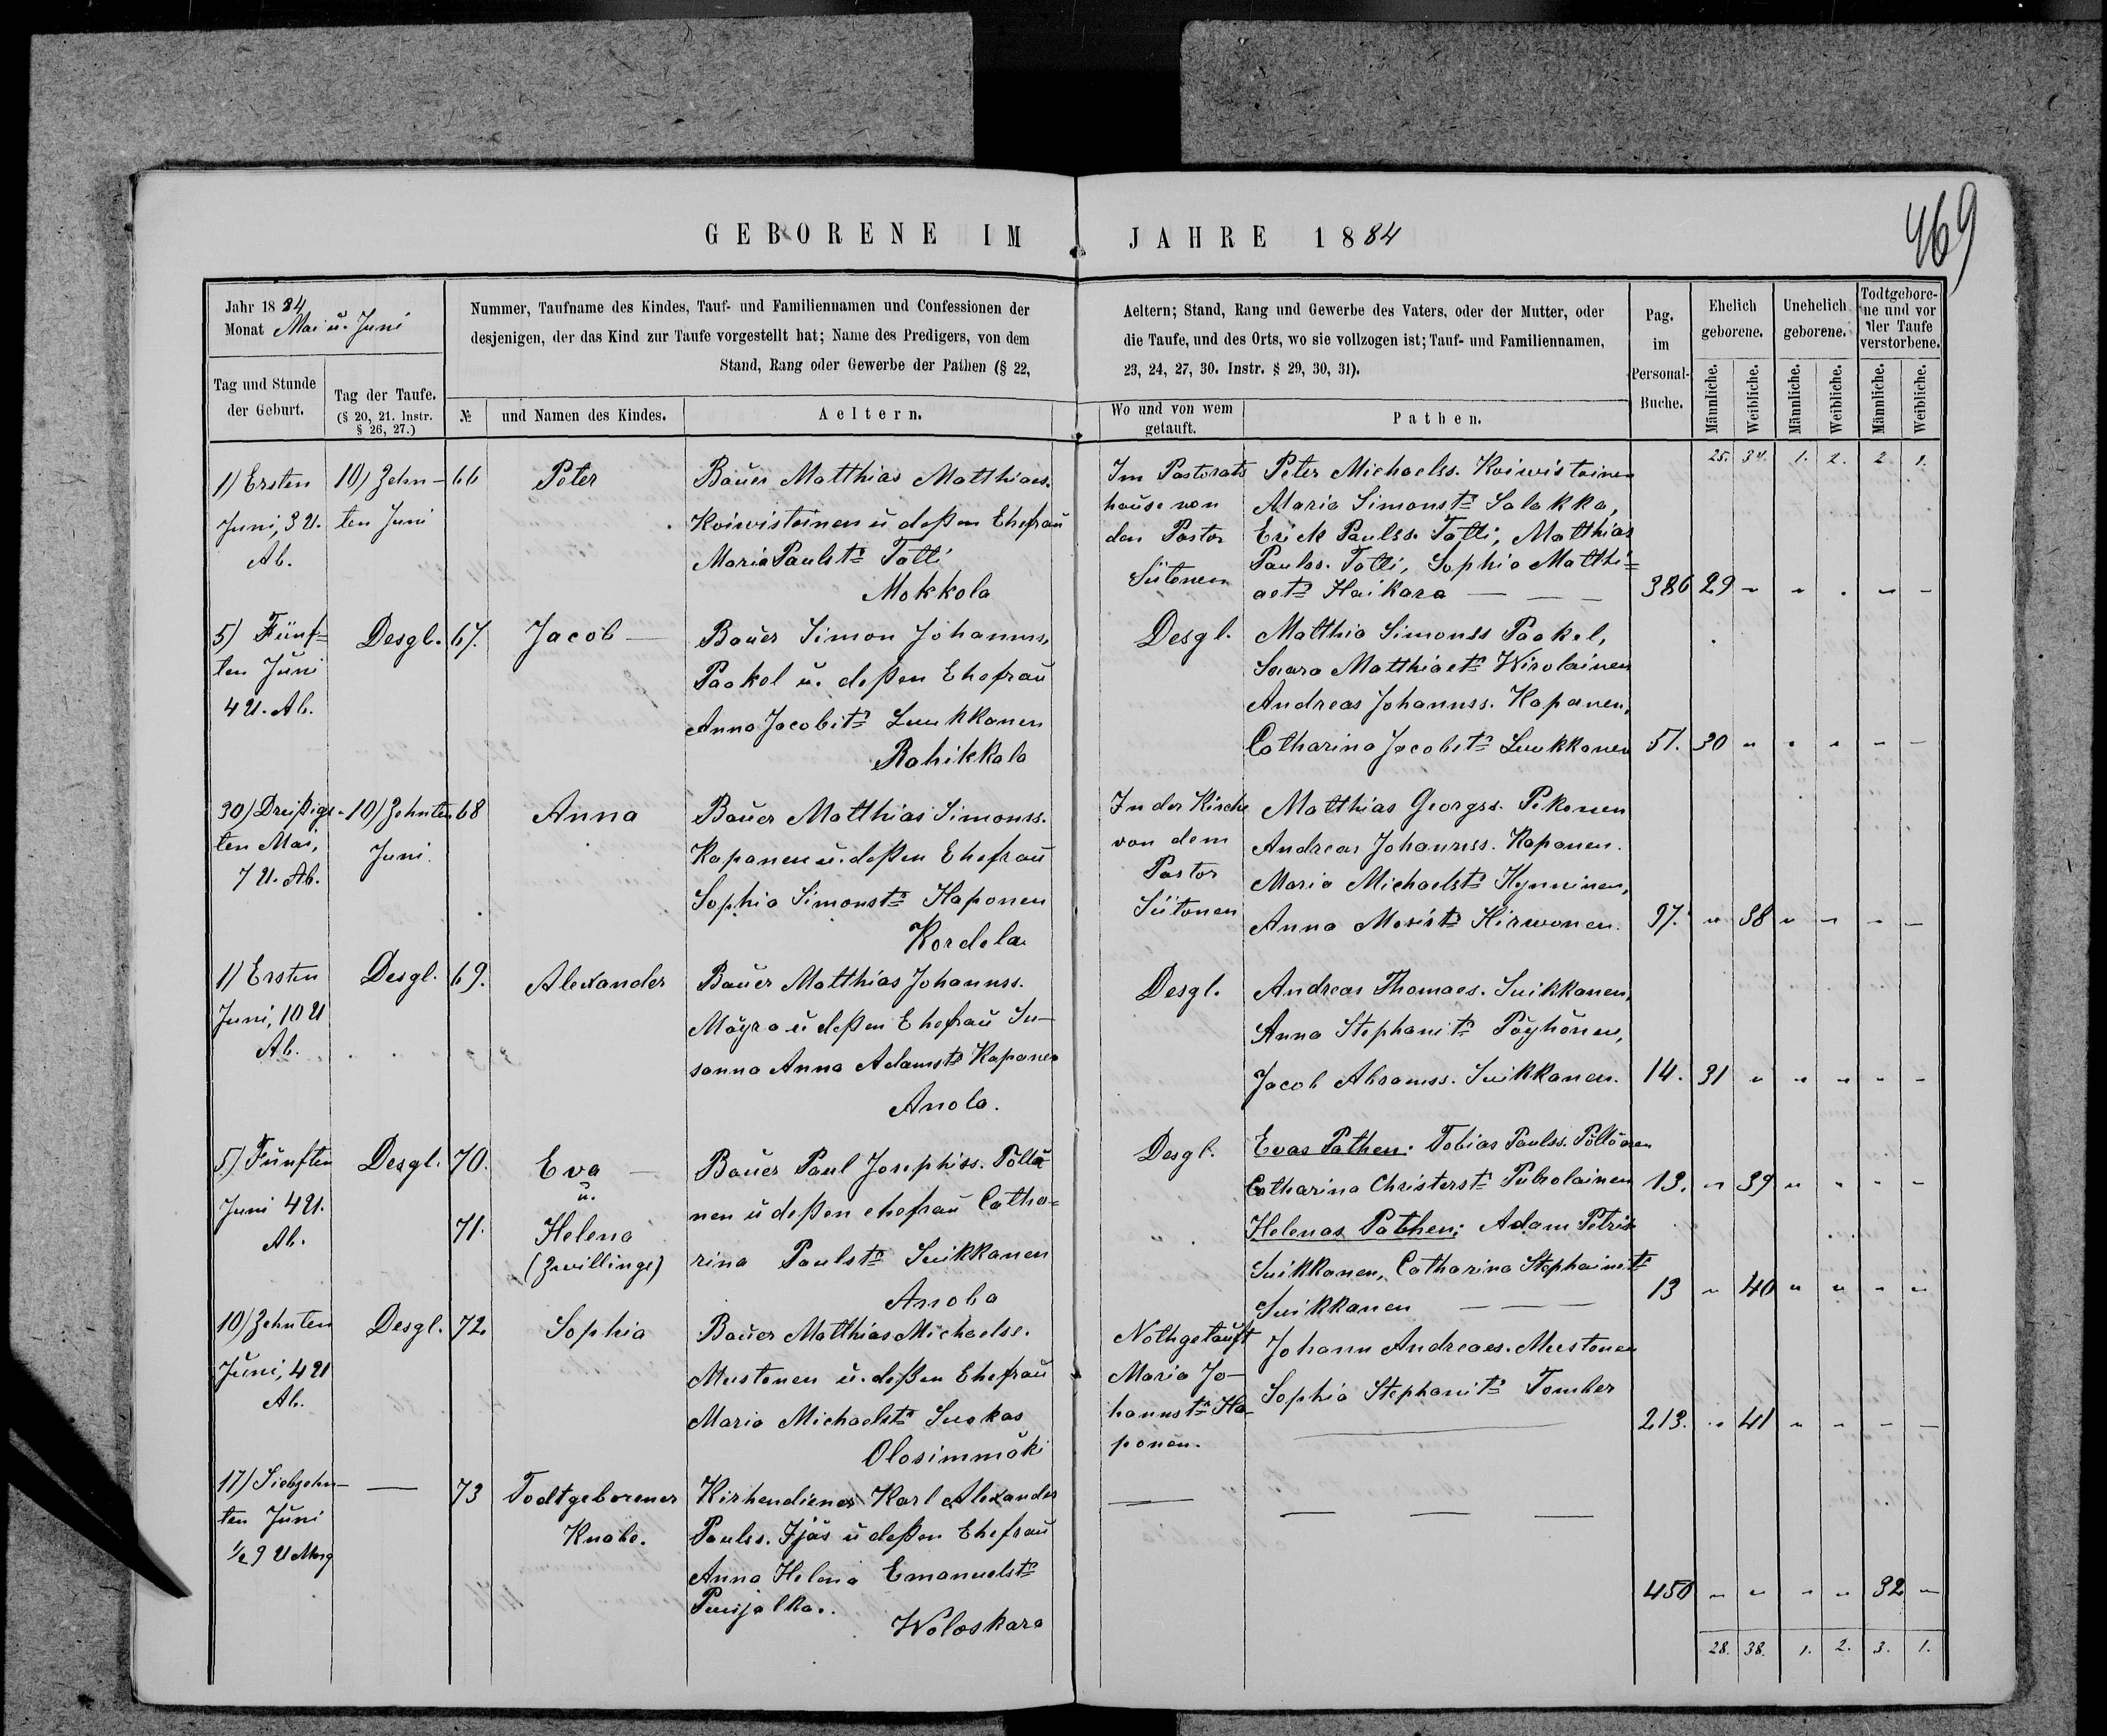 469
GEBORENE IM JAHRE 1884
Jahr 1884
Monat Mai u. Juni
Nummer, Taufname des Kindes, Tauf- und Familiennamen und Confessionen der
desjenigen, der das Kind zur Taufe vorgestellt hat; Name des Predigers, von dem
Stand, Rang oder Gewerbe der Pathen (§ 22,
Aeltern; Stand, Rang und Gewerbe des Vaters, oder der Mutter, oder
die Taufe, und des Orts, wo sie vollzogen ist; Tauf- und Familiennamen,
23, 24, 27, 30. Instr. § 29, 30, 31).
Pag.
im
Personal-
Buche.
Ehelich
geborene.
Unehelich
geborene.
Todtgebore-
ne und vor
der Taufe
verstorbene.
Tag und Stunde
der Geburt.
Tag der Taufe.
(§ 20, 21. Instr.
§ 26, 27.)
№
und Namen des Kindes.
Aeltern.
Wo und von wem
getauft.
Pathen.
Männliche.
Weibliche.
Männliche.
Weibliche.
Männliche.
Weibliche.
25. 34. 1. 2. 2. 1.
1) Ersten
Juni, 3 U.
Ab.
10) Zehn-
ten Juni
66
Peter
Bauer Matthias Matthiaes.
Koiwistoinen u deßen Ehefrau
Maria Paulst. Tatti
Mokkola
Im Pastorats
hause von
den Pastor
Siitonen
Peter Michaelss. Koiwistoinen
Maria Simonst. Salakka,
Erick Paulss. Tatti, Matthias
Paulss. Tatti, Sophia Matthi=
aet. Haikara — — —
386 29 " " " " "
5) Fünf=
ten Juni
4 U. Ab.
Desgl.
67.
Jacob —
Bauer Simon Johannss.
Paakel u. deßen Ehefrau
Anna Jacobit. Luukkanen
Rahikkala
Desgl.
Matthia Simonss Paakel,
Saara Matthiaet. Wirolainen
Andreas Johannss. Kapanen,
Catharina Jacobit. Luukkanen
51. 30 " " " " "
30) Dreißigs-
ten Mai,
7 U. Ab.
10) Zehnten
Juni.
68
Anna
Bauer Matthias Simonss.
Kapanen u. deßen Ehefrau
Sophia Simonst. Haponen
Kordela
In der Kirche
von dem
Pastor
Siitonen
Matthias Georgss. Pekonen
Andreas Johannss. Kapanen.
Maria Michaelst. Hynninen,
Anna Hirwonen.
97. " 38 " " " "
1) Ersten
Juni, 10 U
Ab.
Desgl.
69.
Alexander
Bauer Matthias Johannss.
Mäyra u deßen Ehefrau Su-
sanna Anna Adamst. Kapanen
Anola.
Desgl.
Andreas Thomaes. Suikkanen,
Anna Stephanit. Pöyhönen,
Jacob Abramss. Suikkanen.
14. 31 " " " " "
5) Fünften
Juni 4 U.
Ab.
Desgl.
70.
Eva —
u.
71.
Helena
(Zwillinge)
Bauer Paul Josephiss. Pöllä
nen u deßen ehefrau Catha=
rina Paulst. Suikkanen
Anola
Desgl.
Evas Pathen: Tobias Paulss. Pöllänen
Catharina Christerst.
13. " 39 " " " "
Helenas Pathen: Adam Petris
Suikkanen, Catharina Stephanit.
Suikkanen — — —
13 " 40 " " " "
10) Zehnten
Juni, 4 U
Ab.
Desgl.
72.
Sophia
Bauer Matthias Michaelss.
Mustonen u. deßen Ehefrau
Maria Michaelst. Suokas
Olosimmäki
Nothgetauft
Maria Jo-
hannst. Ha-
ponen.
Johann Andreaes. Mustonen
Sophia Stephanit. Tomber
213. " 41 " " " "
17) Siebzehn-
ten Juni
½ 9 U Morg
—
73
Todtgeborener
Knabe.
Kirhendiener Karl Alexander
Paulss. Ijäs u deßen Ehefrau
Anna Helena Emanuelst.
Puujalka.
Woloskara
450 " " " " 32 "
28. 38. 1. 2. 3. 1.